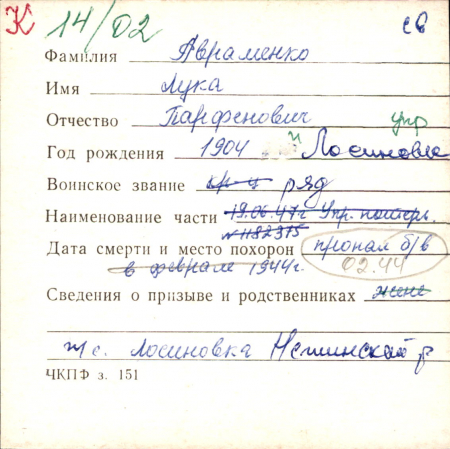 К 14/02 св
Фамилия Авраменко
Имя Лука
Отчество Парфенович упр
Год рождения 1904 Лосиновка
Воинское звание кр-ц ряд
Наименование части 19.06.47г Упр. потерь.
№1182315
Дата смерти и место похорон пропал б/в
в феврале 1944г. 02.44
Сведения о призыве и родственниках жена
п/с. Лосиновка Нежинский р
ЧКПФ з. 151